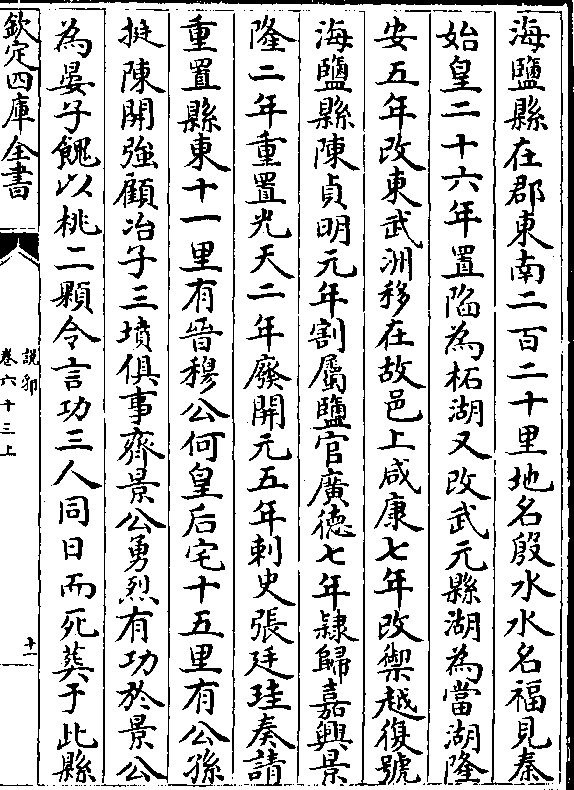 海鹽縣在郡東南二百二十里地名殷水水名福見秦
始皇二十六年置陷為柘湖又改武元縣湖為當湖隆
安五年改東武洲移在故邑上咸康七年改禦越復號
海鹽縣陳貞明元年割屬鹽官廣德七年隷歸嘉興景
隆二年重置光天二年廢開元五年刺史張廷珪奏請
重置縣東十一里有晉穆公何皇后宅十五里有公孫
挺陳開強顧冶子三墳俱事齊景公勇烈有功於景公
為晏子餽以桃二顆令言功三人同日而死葬于此縣
欽定四庫全書
說郛
卷六十三上
十一